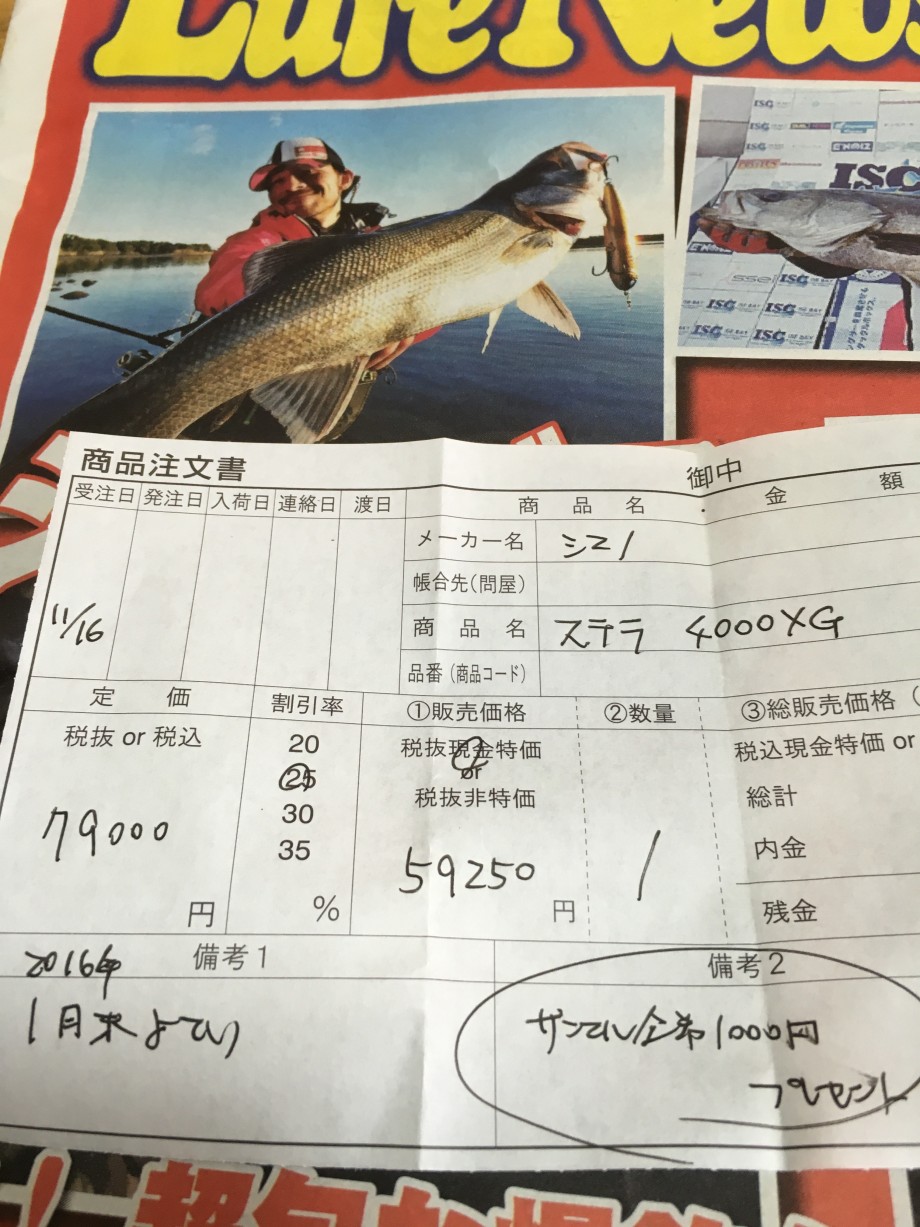 Lure News
ISG
ISG
商品注文書
御中
受注日 発注日 入荷日 連絡日 渡日 商品名 金額
メーカー名 シマノ
帳合先(問屋)
11/16
商品名 ステラ 4000XG
品番(商品コード)
定価 割引率 ①販売価格 ②数量 ③総販売価格(
税抜 or 税込 20 税抜現金特価 税込現金特価 or
25 or
30 税抜非特価 総計
79000 35 59250 1 内金
円 % 円 残金
2016年 備考1 備考2
1月末よてい
1000円
プレゼント